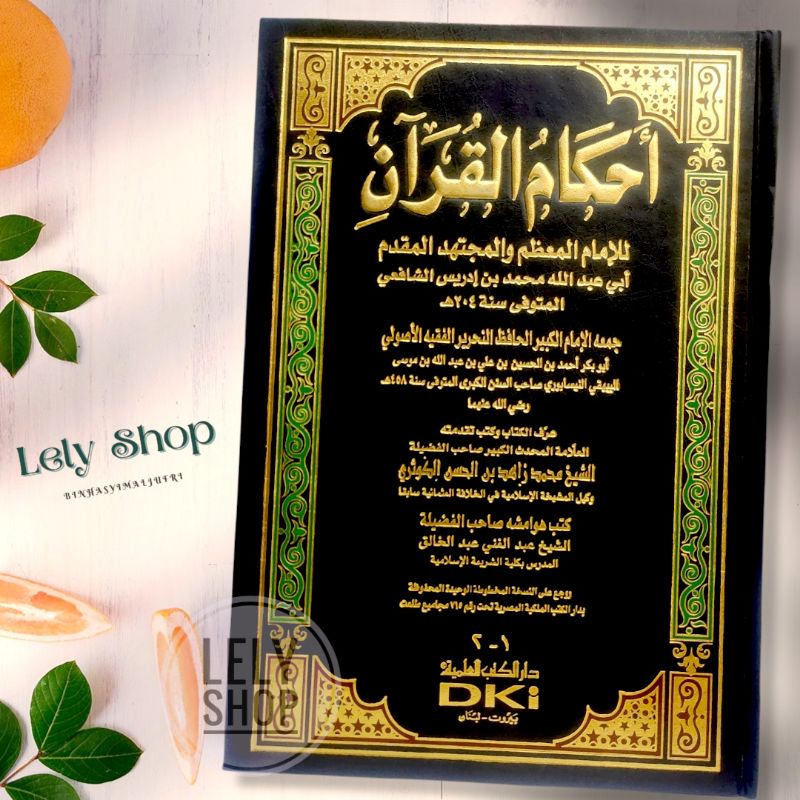 أَحكَامُ القُرآنِ
للإمام المعظم والمجتهد المقدم
أبي عبد الله محمد بن إدريس الشافعي
المتوفى سنة ٢٠٤هـ
جمعه الإمام الكبير الحافظ النحرير الفقيه الأصولي
أبو بكر أحمد بن الحسين بن علي بن عبد الله بن موسى
البيهقي النيسابوري صاحب السنن الكبرى المتوفى سنة ٤٥٨هـ
رضي الله عنهما
عرف الكتاب وكتب تقدمته
العلامة المحدث الكبير صاحب الفضيلة
الشيخ محمد زاهد بن الحسن الكوثري
وكيل المشيخة الإسلامية في الخلافة العثمانية سابقا
كتب هوامشه صاحب الفضيلة
الشيخ عبد الغني عبد الخالق
المدرس بكلية الشريعة الإسلامية
روجع على النسخة المخطوطة الوحيدة المحفوظة
بدار الكتب الملكية المصرية تحت رقم ٧١٥ مجاميع طلعت
١-٢
دار الكتب العلمية
DKi
بيروت - لبنان
Lely Shop
BINHASYIMALJUFRI
LELY
SHOP